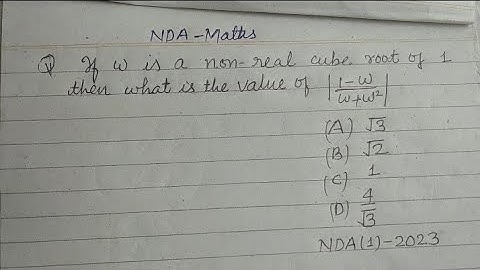 NDA-Maths
Q If ω is a non-real cube root of 1
then what is the value of |(1-ω)/(ω+ω²)|
(A) √3
(B) √2
(C) 1
(D) 4/√3
NDA(1)-2023